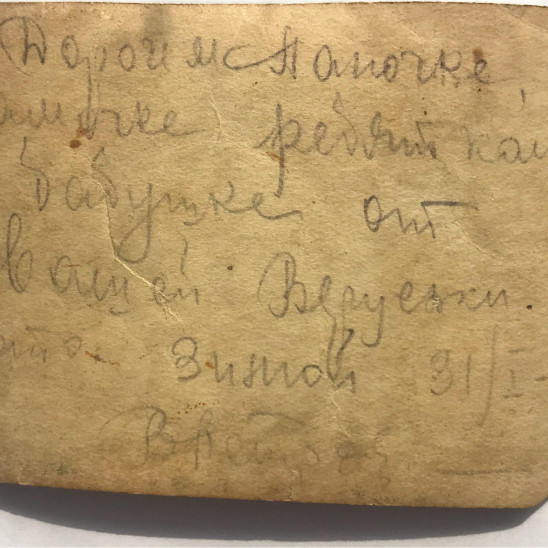 Дорогим Папочке,
амочке ребяткам
бабушке от
вашей Верусеньки.
Зимой 31/I